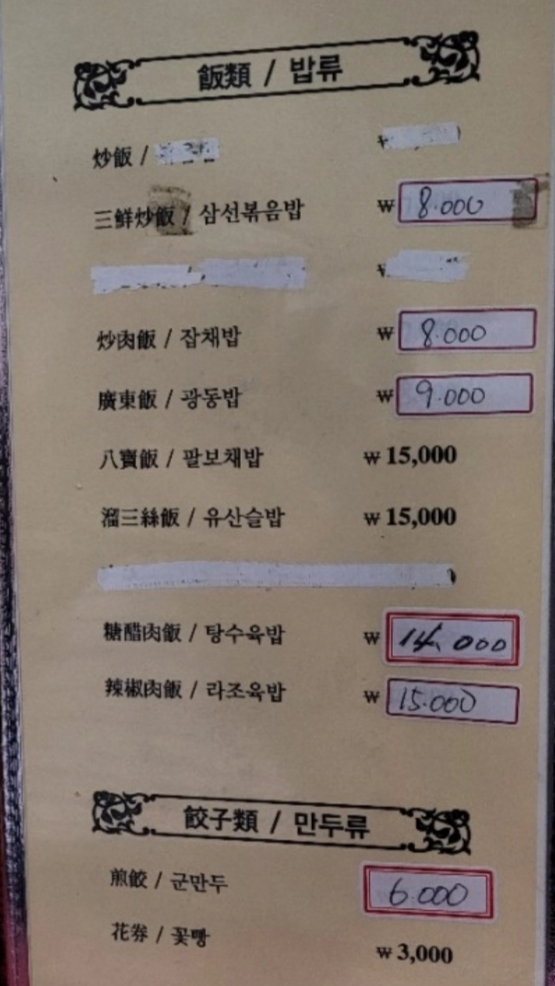 飯類 / 밥류
炒飯 /
三鮮炒飯 / 삼선볶음밥 ₩ 8.000
炒肉飯 / 잡채밥 ₩ 8.000
廣東飯 / 광동밥 ₩ 9.000
八寶飯 / 팔보채밥 ₩ 15,000
溜三絲飯 / 유산슬밥 ₩ 15,000
糖醋肉飯 / 탕수육밥 ₩ 14,000
辣椒肉飯 / 라조육밥 ₩ 15.000
餃子類 / 만두류
煎餃 / 군만두 6.000
花券 / 꽃빵 ₩ 3,000